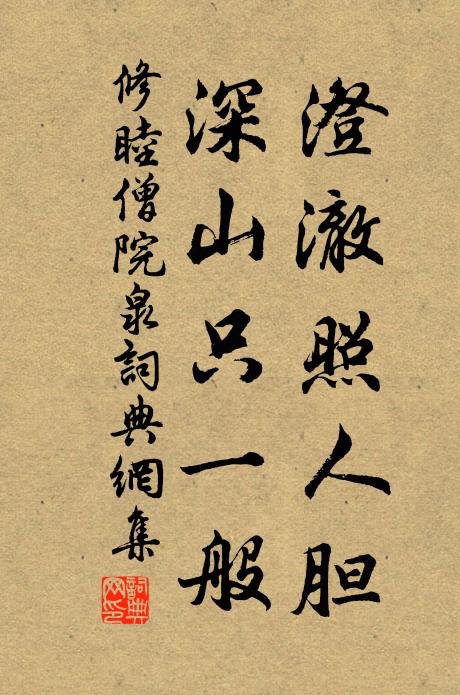 澄澈照人胆
深山只一般
修睦僧院泉詞典網集
詞典網印